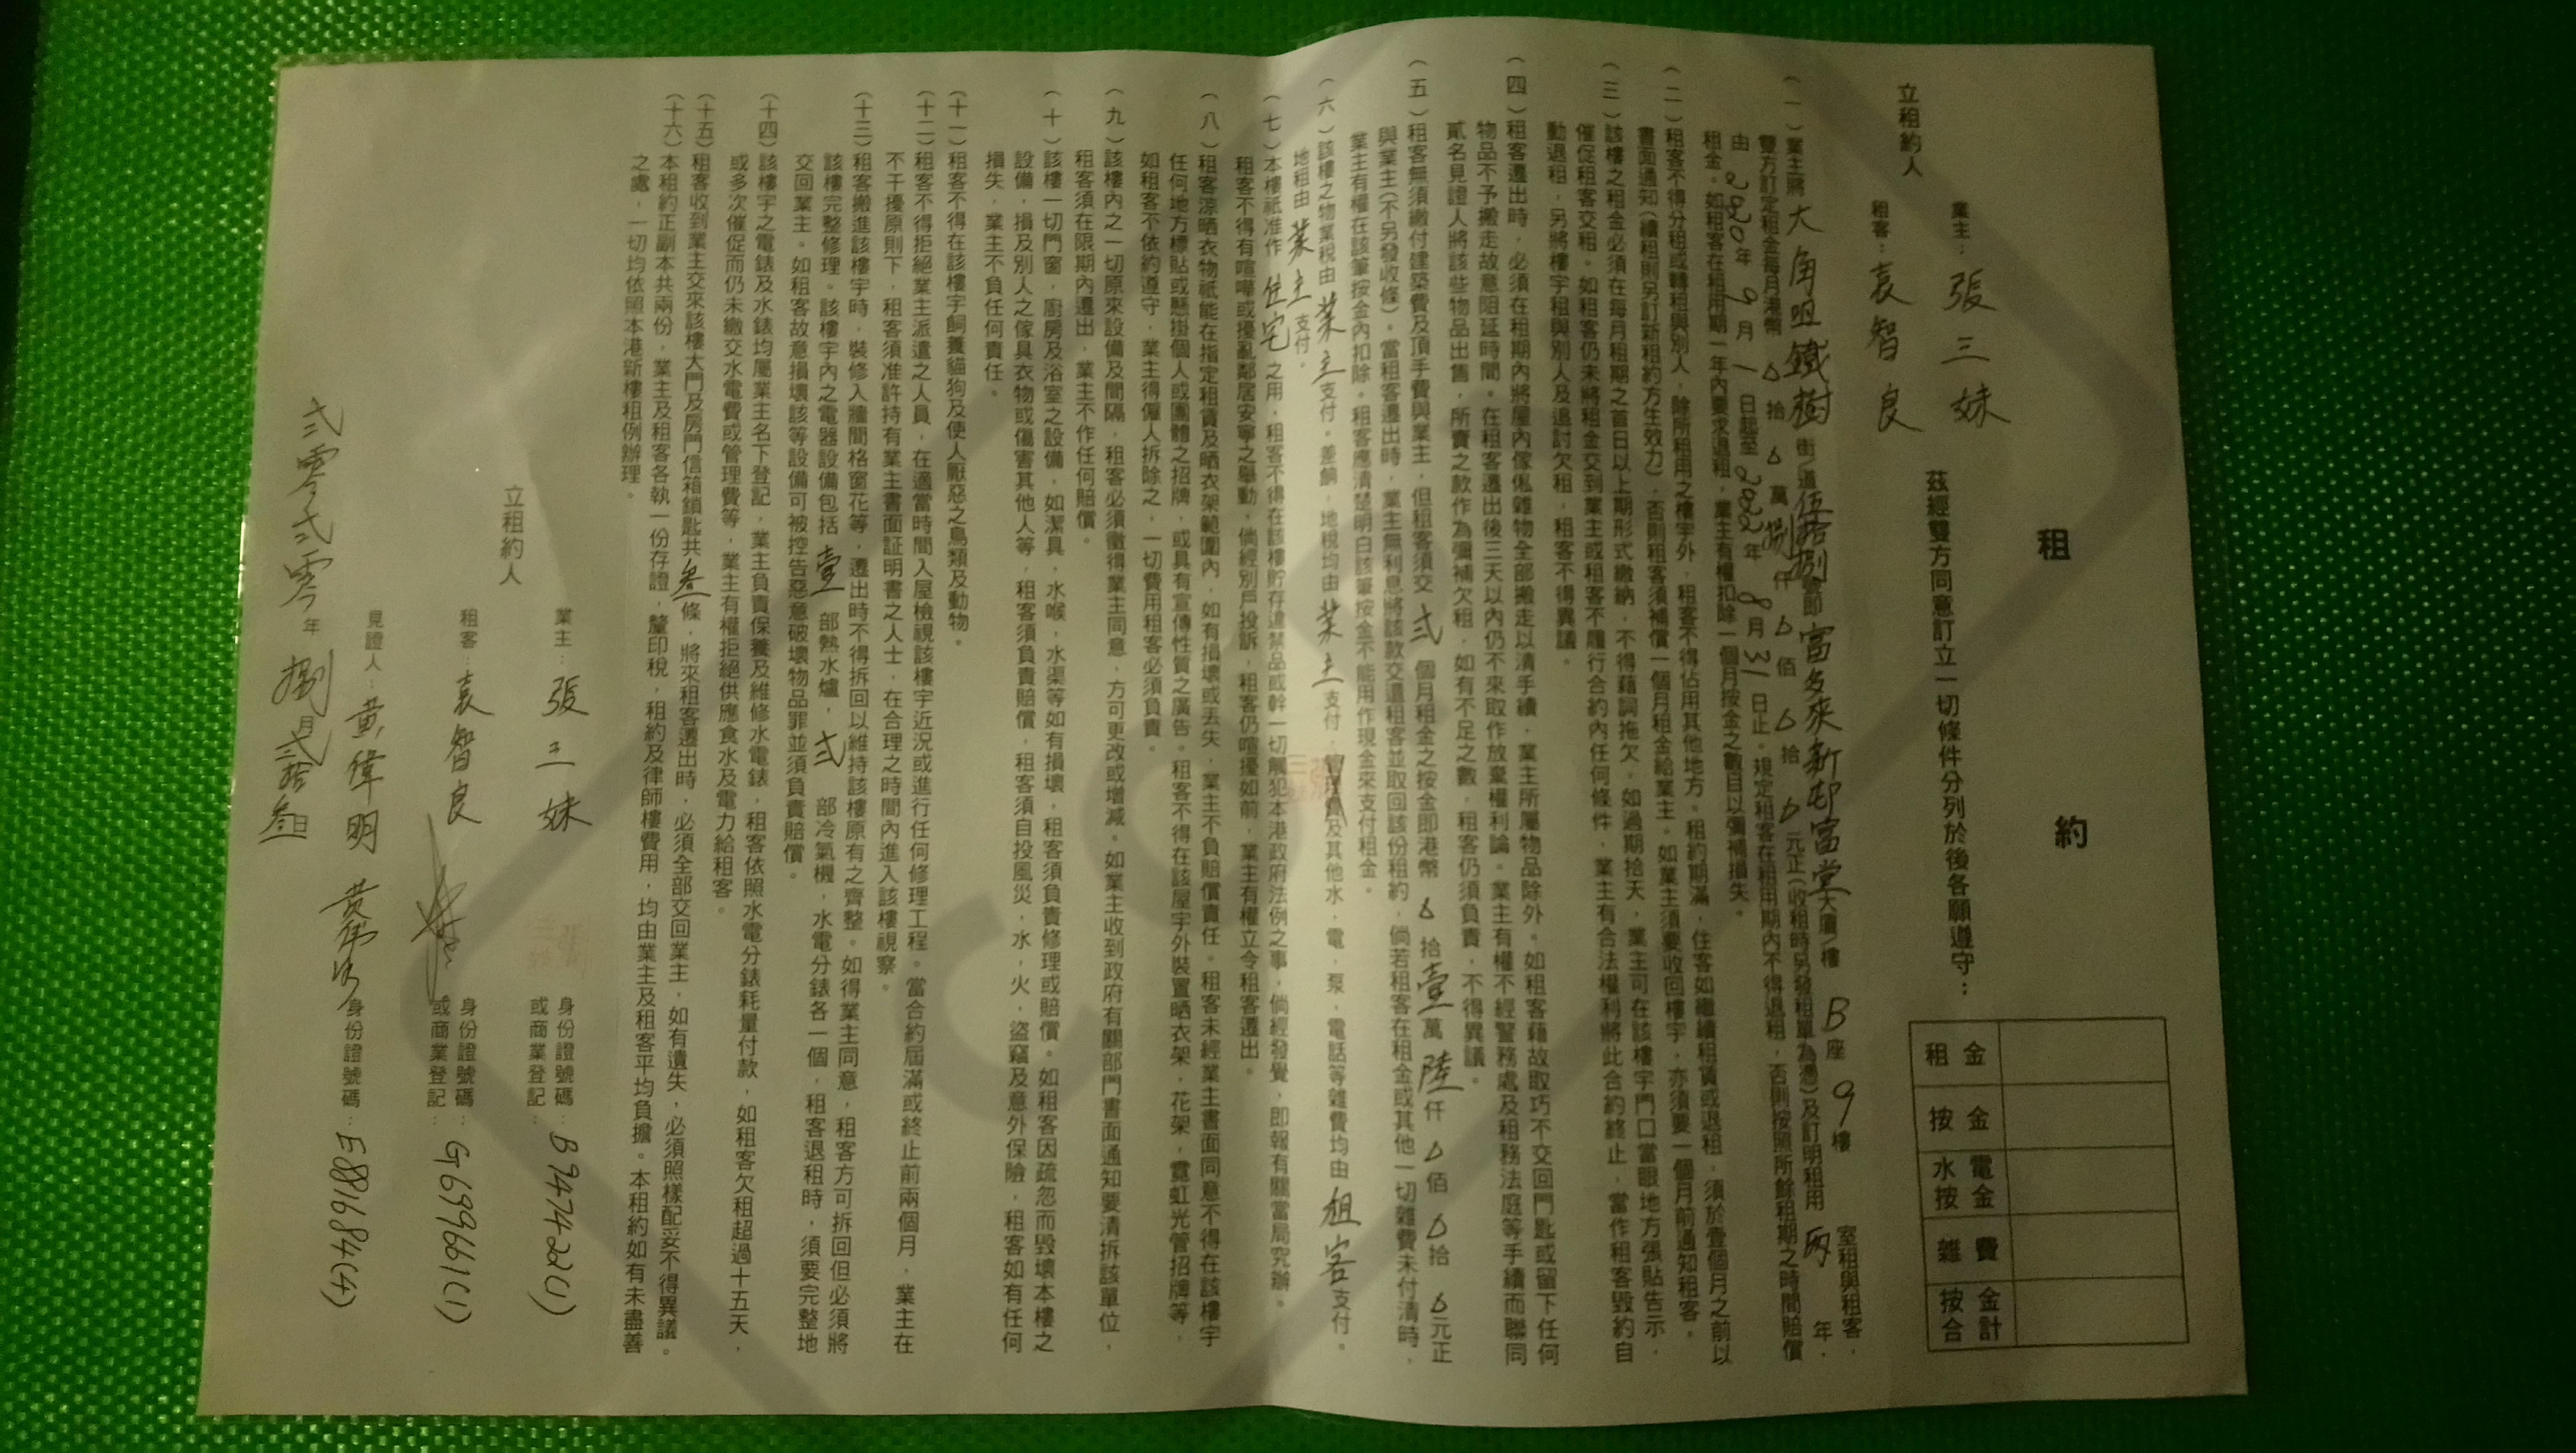 租　約
立租約人
業主：張三妹
租客：袁智良
茲經雙方同意訂立一切條件分列於後各願遵守：
租金
按金
水電按金
雜費
按金合計
（一）業主將大角咀鐵樹街/道伍拾捌號即富多來新邨富堂大廈/樓B座9樓 室租與租客，
雙方訂定租金每月港幣△拾△萬捌仟△佰△拾△元正（收租時另發租單為憑）及訂明租用兩年，
由2020年9月1日起至2022年8月31日止。規定租客在租用期內不得退租，否則按照所餘租期之時間賠償
租金。如租客在租用期一年內要求退租，業主有權扣除一個月按金之數目以彌補損失。
（二）租客不得分租或轉租與別人，除所租用之樓宇外，租客不得佔用其他地方。租約期滿，住客如繼續租賃或退租，須於壹個月之前以
書面通知（續租則另訂新租約方生效力），否則租客須補償一個月租金給業主。如業主須要收回樓宇，亦須要一個月前通知租客。
（三）該樓之租金必須在每月租期之首日以上期形式繳納，不得藉詞拖欠，如過期拾天，業主可在該樓宇門口當眼地方張貼告示，
催促租客交租。如租客仍未將租金交到業主或租客不履行合約內任何條件，業主有合法權利將此合約終止，當作租客毀約自
動退租，另將樓宇租與別人及追討欠租，租客不得異議。
（四）租客遷出時，必須在租期內將屋內傢俬雜物全部搬走以清手續，業主所屬物品除外。如租客藉故取巧不交回門匙或留下任何
物品不予搬走故意阻延時間。在租客遷出後三天以內仍不來取作放棄權利論。業主有權不經警務處及租務法庭等手續而聯同
貳名見證人將該些物品出售，所賣之款作為彌補欠租，如有不足之數，租客仍須負責，不得異議。
（五）租客無須繳付建築費及頂手費與業主，但租客須交弍個月租金之按金即港幣△拾壹萬陸仟△佰△拾△元正
與業主（不另發收條）。當租客遷出時，業主無利息將該款交還租客並取回該份租約，倘若租客在租金或其他一切雜費未付清時，
業主有權在該筆按金內扣除。租客應清楚明白該筆按金不能用作現金來支付租金。
（六）該樓之物業稅由業主支付。差餉，地稅均由業主支付，管理費及其他水，電，泵，電話等雜費均由租客支付。
地租由業主支付。
（七）本樓祇准作住宅之用，租客不得在該樓貯存違禁品或幹一切觸犯本港政府法例之事，倘經發覺，即報有關當局究辦。
租客不得有喧嘩或擾亂鄰居安寧之舉動，倘經別戶投訴，租客仍喧擾如前，業主有權立令租客遷出。
（八）租客涼晒衣物祇能在指定租賃及晒衣架範圍內，如有損壞或丟失，業主不負賠償責任。租客未經業主書面同意不得在該樓宇
任何地方標貼或懸掛個人或團體之招牌，或具有宣傳性質之廣告。租客不得在該屋宇外裝置晒衣架，花架，霓虹光管招牌等，
如租客不依約遵守，業主得僱人拆除之，一切費用租客必須負責。
（九）該樓內之一切原來設備及間隔，租客必須徵得業主同意，方可更改或增減。如業主收到政府有關部門書面通知要清拆該單位，
租客須在限期內遷出，業主不作任何賠償。
（十）該樓一切門窗，廚房及浴室之設備，如潔具，水喉，水渠等如有損壞，租客須負責修理或賠償。如租客因疏忽而毀壞本樓之
設備，損及別人之傢具衣物或傷害其他人等，租客須負責賠償，租客須自投風災，水，火，盜竊及意外保險，租客如有任何
損失，業主不負任何責任。
（十一）租客不得在該樓宇飼養貓狗及使人厭惡之鳥類及動物。
（十二）租客不得拒絕業主派遣之人員，在適當時間入屋檢視該樓宇近況或進行任何修理工程。當合約屆滿或終止前兩個月，業主在
不干擾原則下，租客須准許持有業主書面証明書之人士，在合理之時間內進入該樓視察。
（十三）租客搬進該樓宇時，裝修入牆間格窗花等，遷出時不得拆回以維持該樓原有之齊整。如得業主同意，租客方可拆回但必須將
該樓完整修理。該樓宇內之電器設備包括壹部熱水爐，弍部冷氣機，水電分錶各一個，租客退租時，須要完整地
交回業主。如租客故意損壞該等設備可被控告惡意破壞物品罪並須負責賠償。
（十四）該樓宇之電錶及水錶均屬業主名下登記，業主負責保養及維修水電錶，租客依照水電分錶耗量付款，如租客欠租超過十五天，
或多次催促而仍未繳交水電費或管理費等，業主有權拒絕供應食水及電力給租客。
（十五）租客收到業主交來該樓大門及房門信箱鎖匙共叁條，將來租客遷出時，必須全部交回業主，如有遺失，必須照樣配妥不得異議。
（十六）本租約正副本共兩份，業主及租客各執一份存證，釐印稅，租約及律師樓費用，均由業主及租客平均負擔。本租約如有未盡善
之處，一切均依照本港新樓租例辦理。
立租約人
業主：張三妹
身份證號碼：B947422(1)
或商業登記：
租客：袁智良
身份證號碼：G699661(1)
或商業登記：
見證人：黃偉明 黃偉明 身份證號碼：E881684(4)
弍零弍零年捌月弍拾叁日